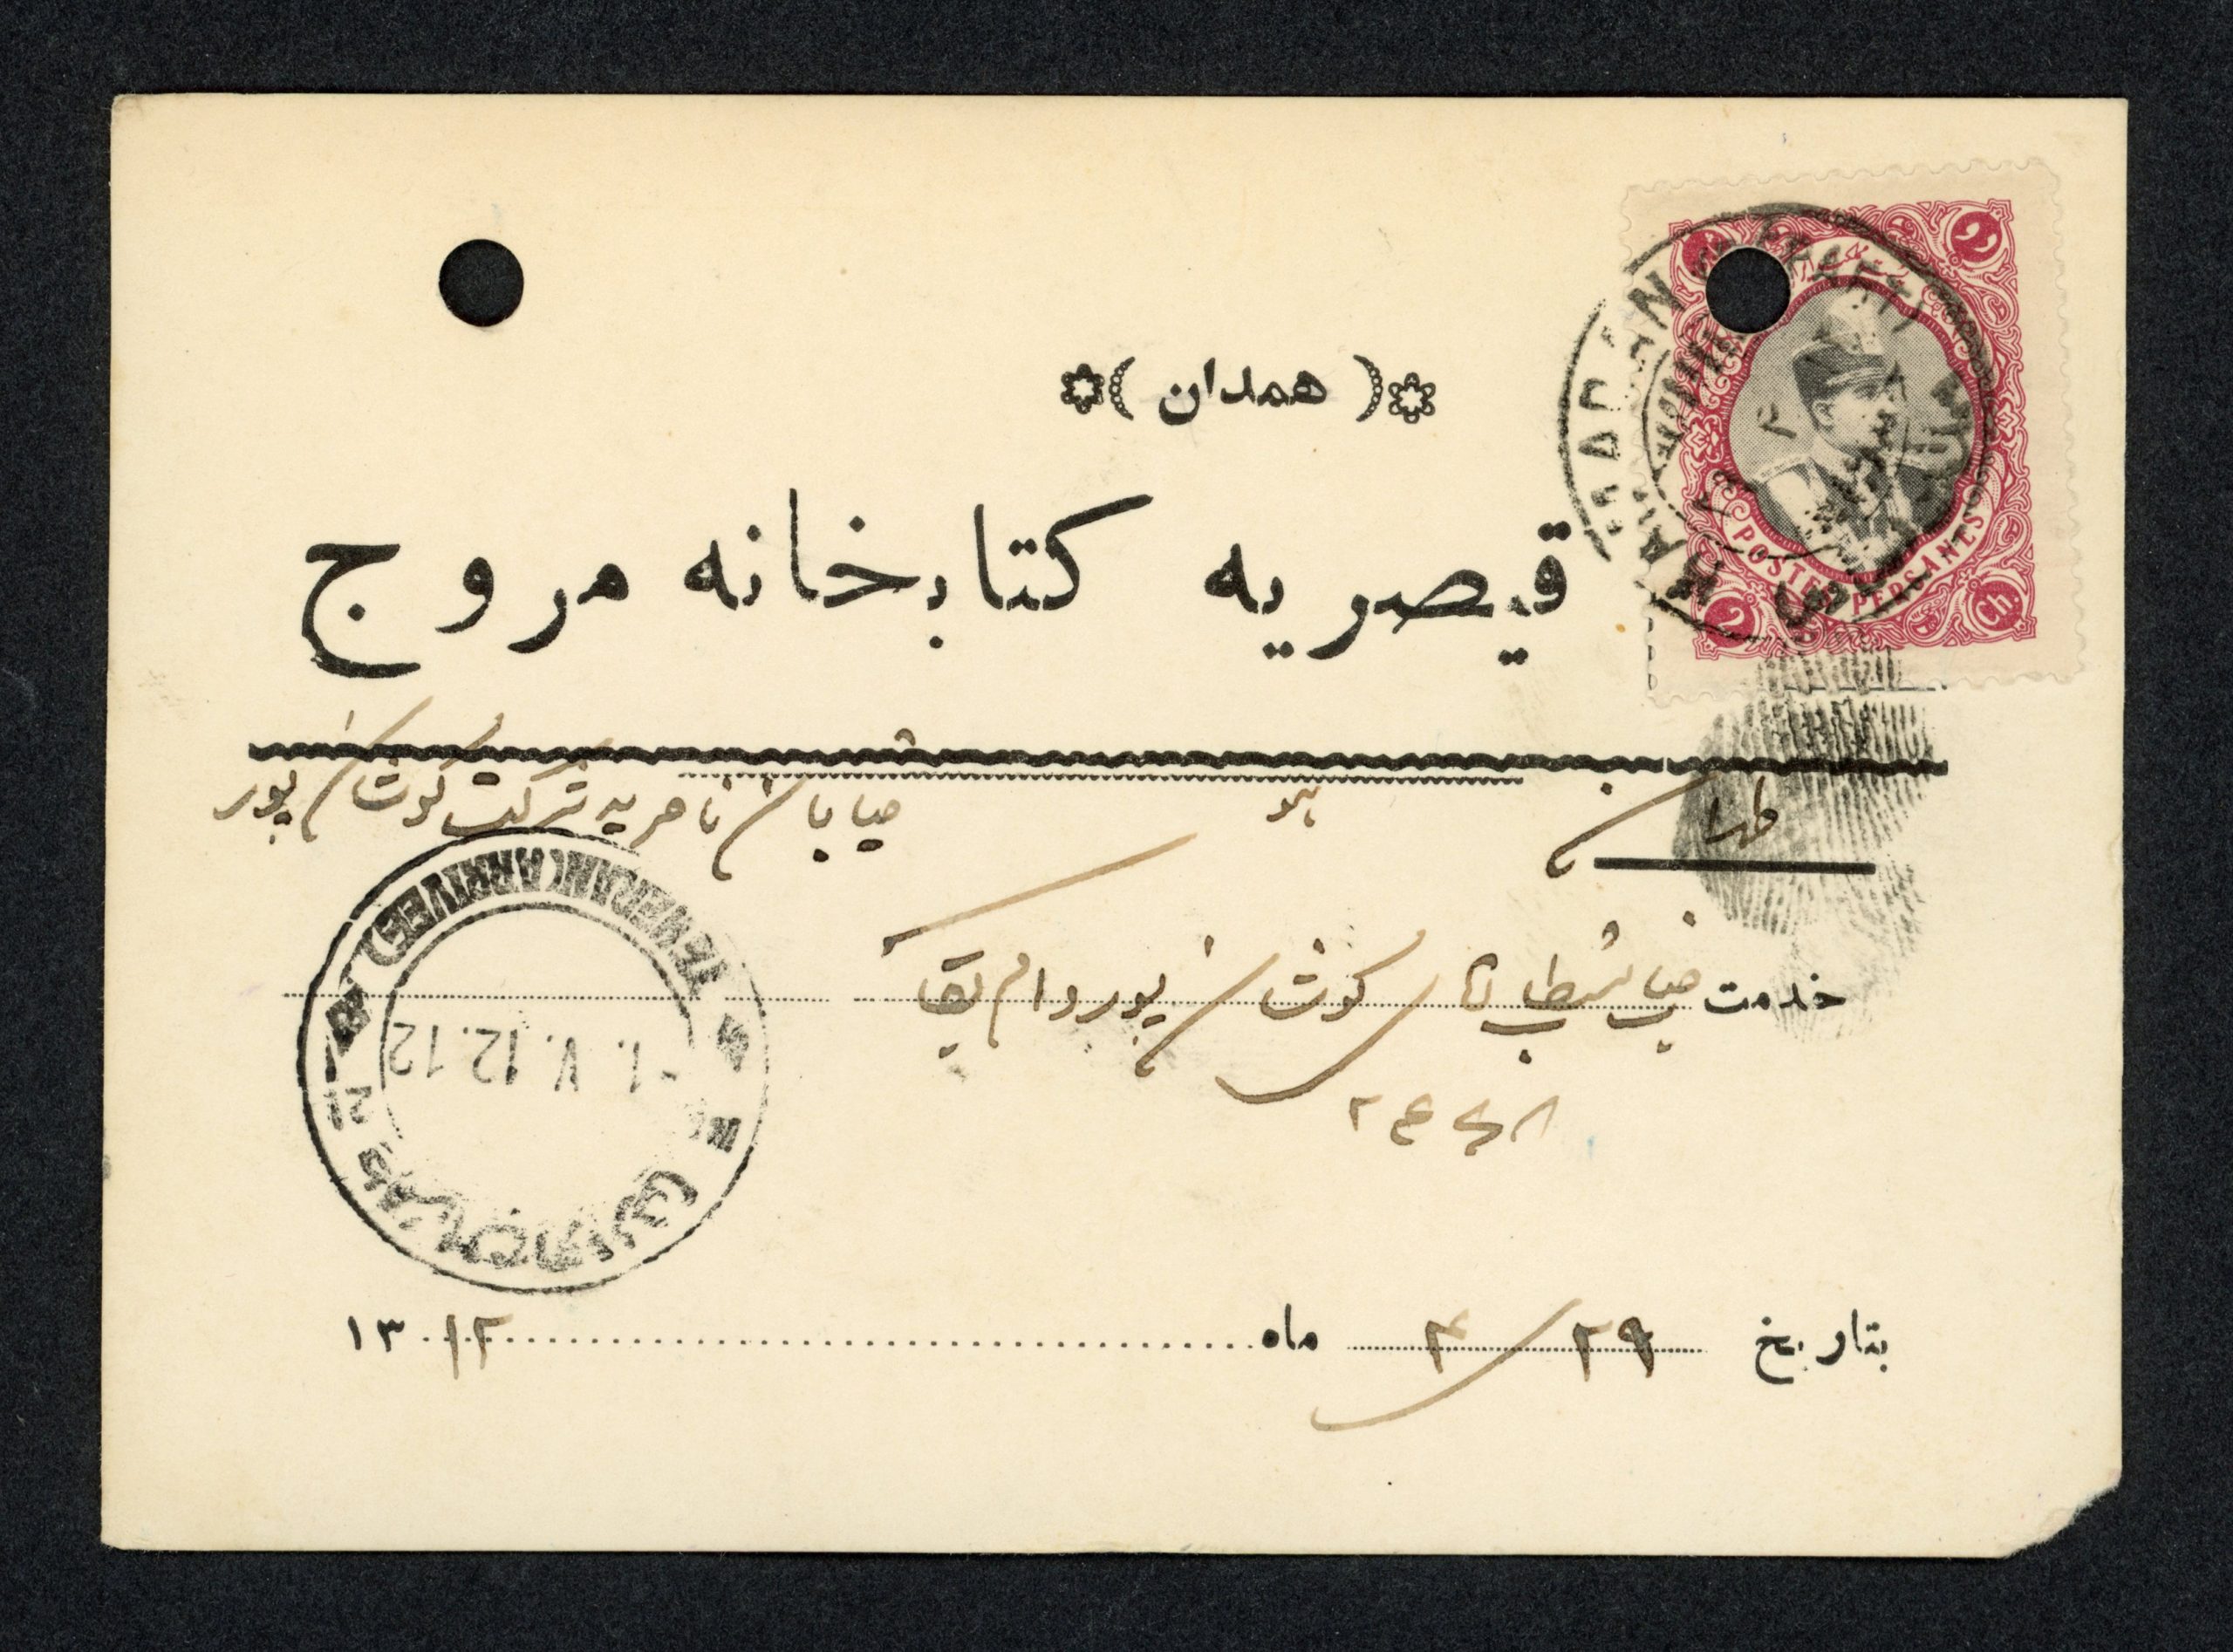 ( همدان )
قیصریه کتابخانه مروج
2
POSTES PERSANES
2 Ch.
HAMADAN
طهران
خیابان ناصریه شرکت کوشان پور
خدمت جناب کوشان پور دام بقا
TEHERAN (ARRIVEE)
-1. V. 12. 12
بتاریخ ۲۹ ۴ ماه ۱۳۱۲